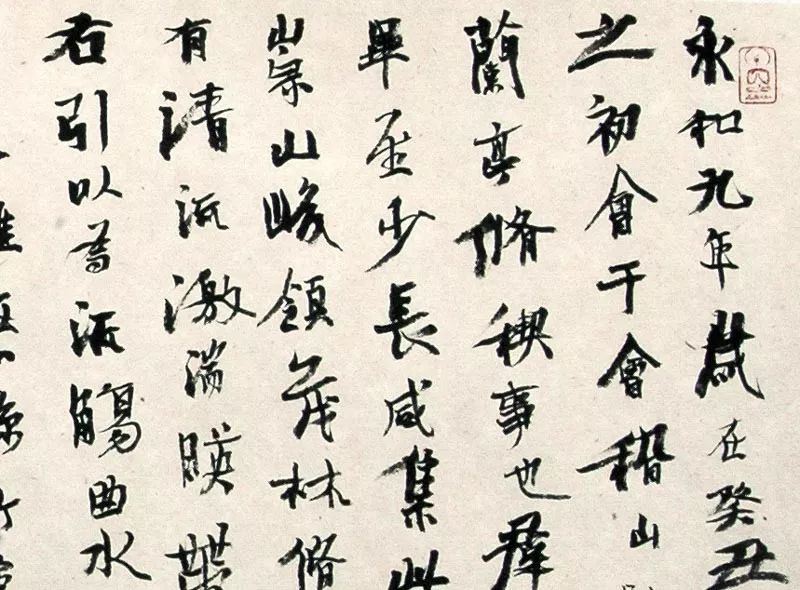 永和九年歲在癸丑
之初會于會稽山
蘭亭脩稧事也羣
畢至少長咸集此
崇山峻領茂林脩
有清流激湍暎帶
右引以為流觴曲水